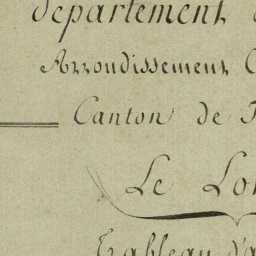 département
Arrondissement
Canton de
Le
Tableau d'a